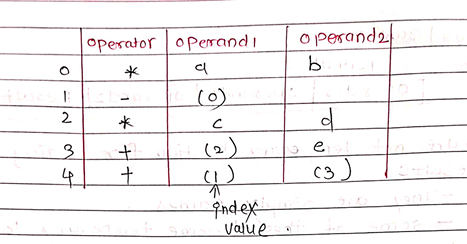 operator operand1 operand2
0 * a b
1 - (0)
2 * c d
3 + (2) e
4 + (1) (3)
index
value.